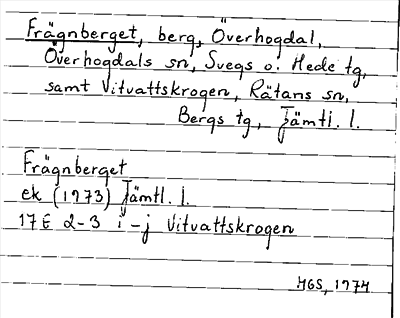 Frägnberget, berg, Överhogdal,
Överhogdals sn, Svegs o. Hede tg,
samt Vitvattskrogen, Rätans sn,
Bergs tg, Jämtl. l.
Frägnberget
ek (1973) Jämtl. l.
17E 2-3 i-j Vitvattskrogen
HGS, 1974